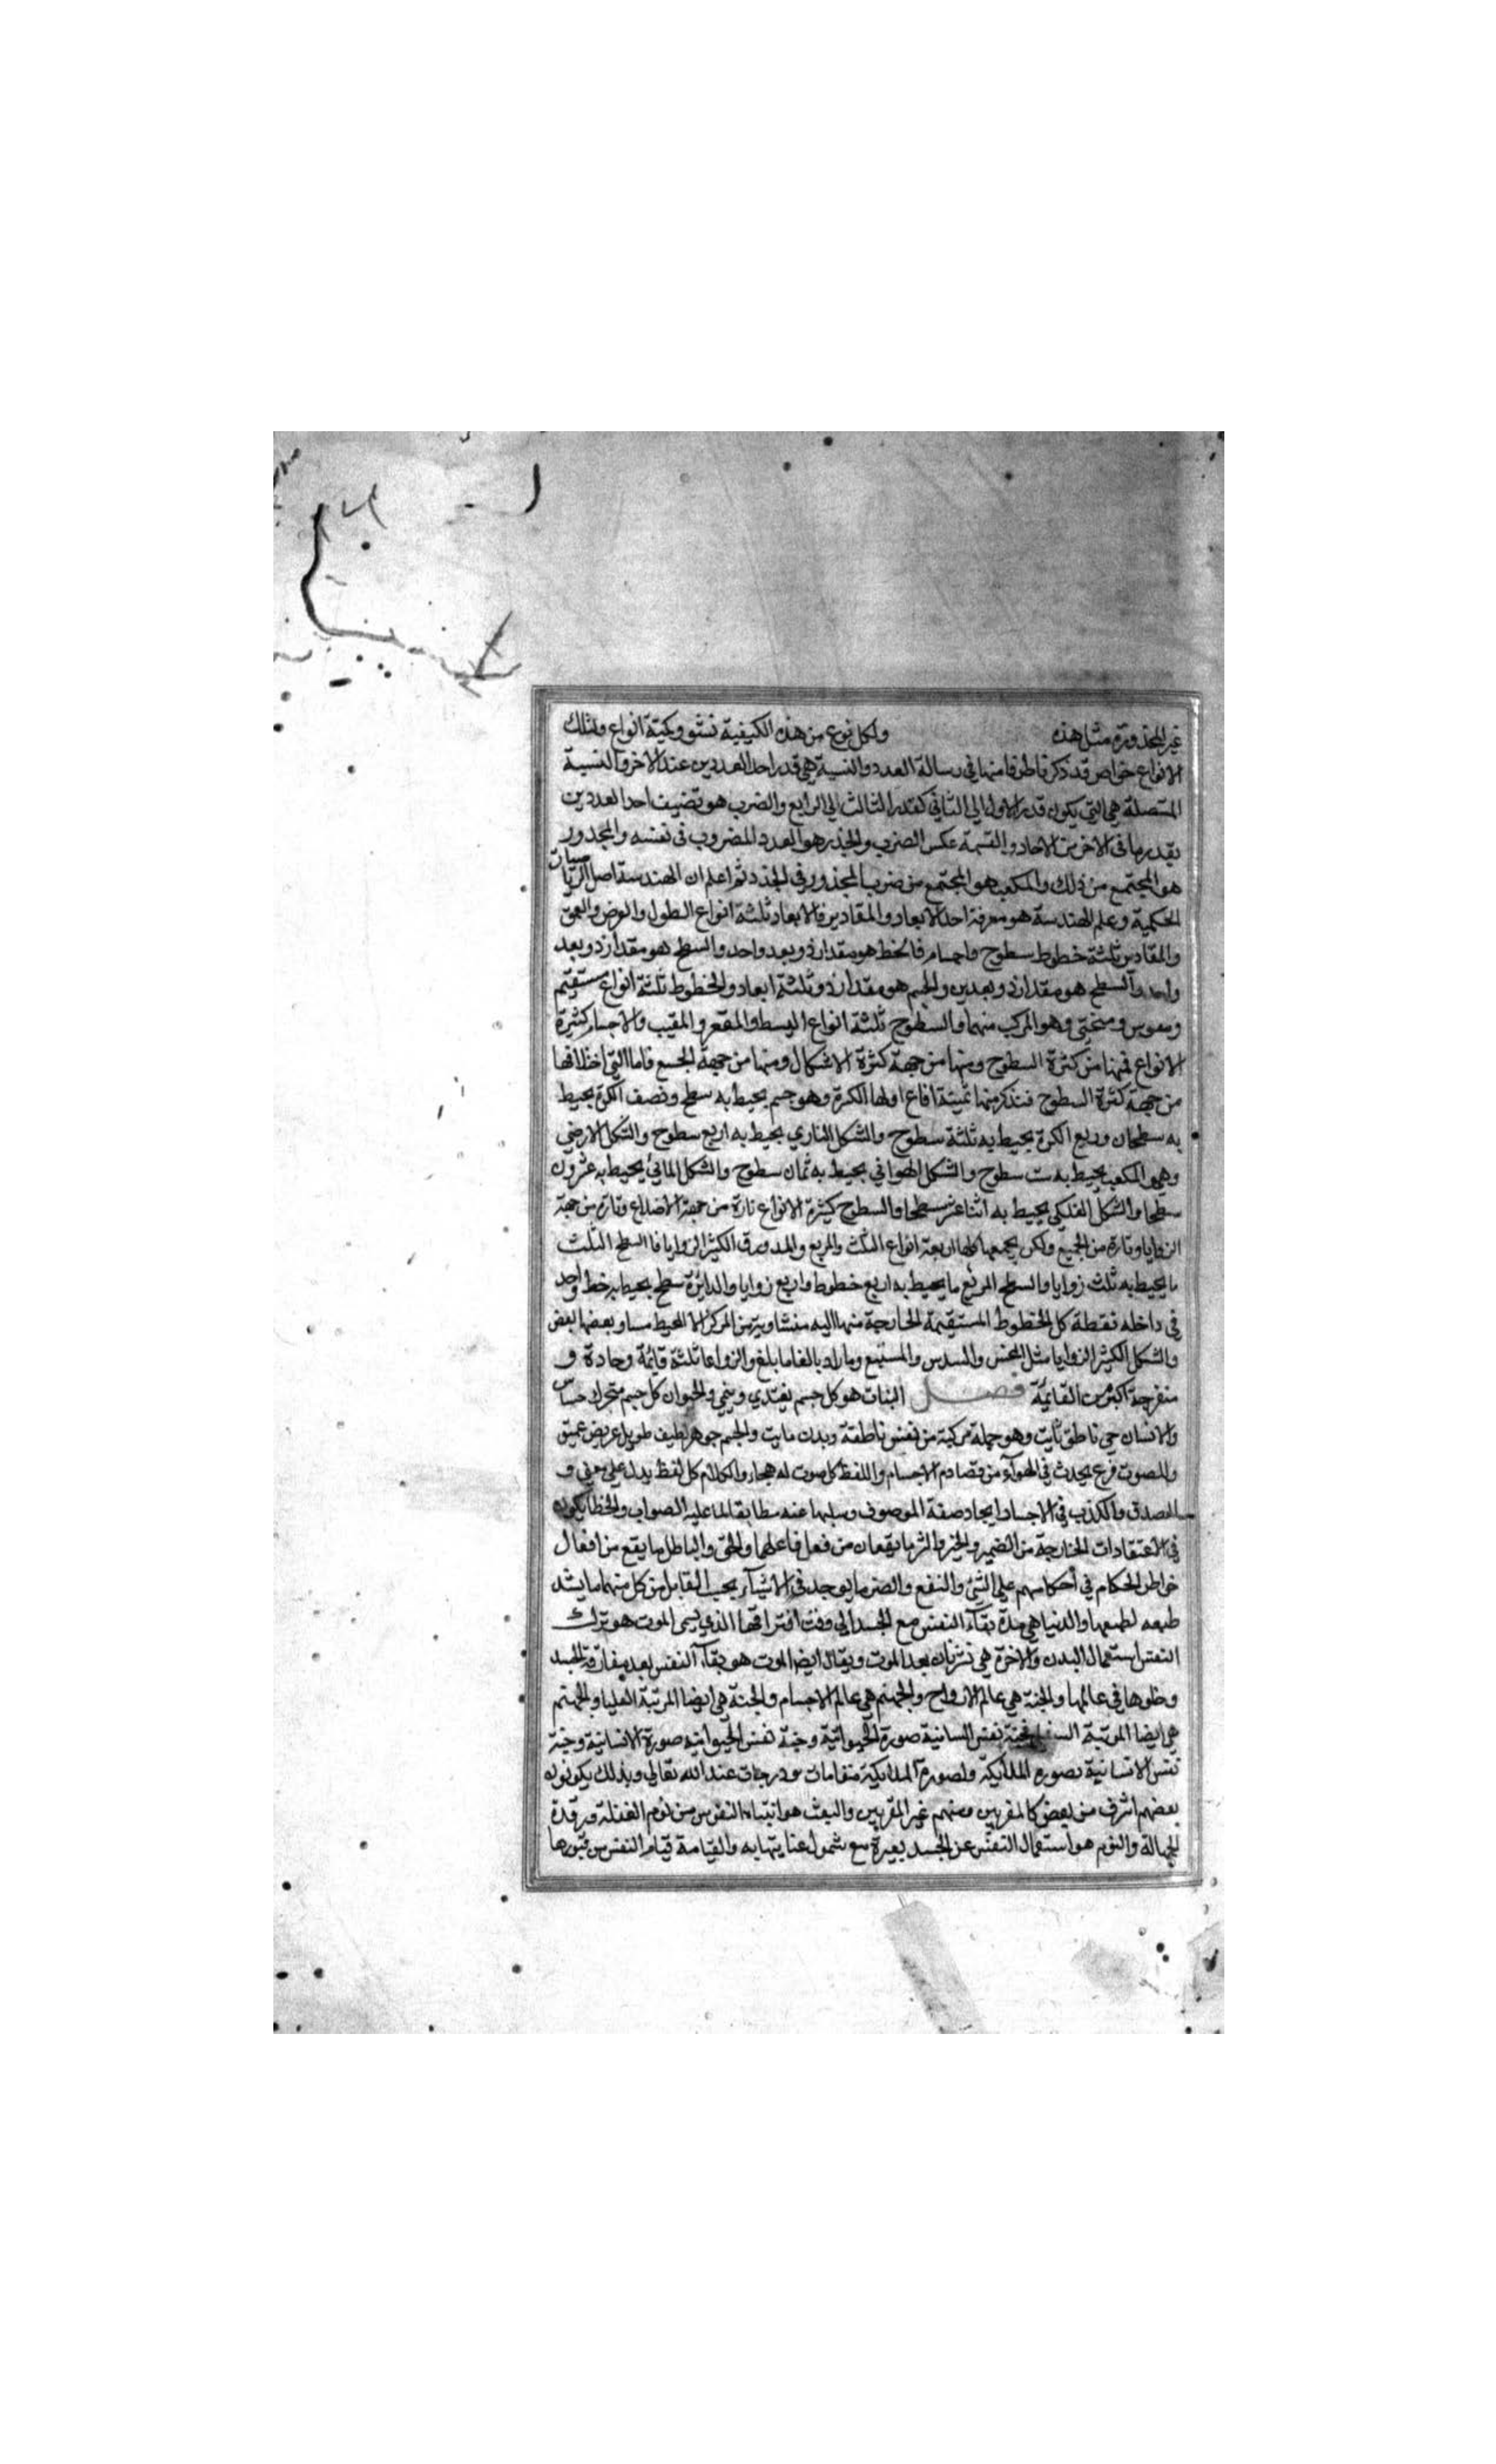 غير المجذورة مثل هذه ولكل نوع من هذه الكيفية نشو وكمية انواع ولتلك
الانواع خواص قد ذكرنا طرفا منها في رسالة العدد والنسبة هي قدر احد العددين عند الاخر والنسبة
المتصلة هي التي يكون قدر الاول الي الثاني كقدر الثالث الي الرابع والضرب هو تضعيف احد العددين
بقدر ما في الاخر من الاحاد والقسمة عكس الضرب والجذر هو العدد المضروب في نفسه والمجذور
هو المجتمع من ذلك والمكعب هو المجتمع من ضرب المجذور في الجذر ثم اعلم ان الهندسة اصل الرياضيات
الحكمية وعلم الهندسة هو معرفة احد الابعاد والمقادير فالابعاد ثلثة انواع الطول والعرض والعمق
والمقادير ثلثة خطوط سطوح واجسام فالخط هو مقدار ذو بعد واحد والسطح هو مقدار ذو بعد
واحد والسطح هو مقدار ذو بعدين والجسم هو مقدار ذو ثلثة ابعاد والخطوط ثلثة انواع مستقيم
ومقوس ومنحني وهو المركب منهما والسطوح ثلثة انواع البسيط والمقعر والمقبب والاجسام كثيرة
الانواع فمنها من كثرة السطوح ومنها من جهة كثرة الاشكال ومنها من جهة الجسم فاما التي اختلافها
من جهة كثرة السطوح فنذكر منها ثمنية انواع اولها الكرة وهو جسم يحيط به سطح ونصف الكرة يحيط
به سطحان وربع الكرة يحيط به ثلثة سطوح والشكل الناري يحيط به اربع سطوح والشكل الارضي
وهو المكعب يحيط به ست سطوح والشكل الهوائي يحيط به ثمان سطوح والشكل المائي يحيط به عشرون
سطحا والشكل الفلكي يحيط به اثنا عشر سطحا والسطوح كثيرة الانواع تارة من جهة الاضلاع وتارة من جهة
الزوايا وتارة من الجميع ولكن يجمعها كلها اربعة انواع المثلث والمربع والمدور والكثير الزوايا فالسطح المثلث
ما يحيط به ثلث زوايا والسطح المربع ما يحيط به اربع خطوط واربع زوايا والدائرة سطح يحيط به خط واحد
في داخله نقطة كل الخطوط المستقيمة الخارجة منها اليه متساوية من المركز الا المحيط مساو بعضها بعض
والشكل الكثير الزوايا مثل المخمس والمسدس والمسبع وما زاد بالغا ما بلغ والزوايا ثلثة قائمة وحادة و
منفرجة اكبر من القائمة فصل النبات هو كل جسم يغتدي وينمي والحيوان كل جسم متحرك حساس
والانسان حي ناطق مايت وهو جملة مركبة من نفس ناطقة وبدن مايت والجسم جوهر لطيف طويل عريض عميق
والصوت قرع يحدث في الهواء من تصادم الاجسام واللفظ كل صوت له هجاء والكلام كل لفظ يدل علي معني و
الصدق والكذب في الاجساد ايجاد صفة الموصوف وسلبها عنه مطابقا لما عليه الصواب والخطا يكون
في الاعتقادات الخارجة من الضمير والخير والشر ما يقعان من فعل فاعلهما والحق والباطل ما يقع من افعال
خواطر الحكام في احكامهم علي الشئ والنفع والضر ما يوجد في الاشيآء بحسب التقابل من كل منهما ما يشد
طبعه لطبعها والدنيا هي مدة بقآء النفس مع الجسد الي وقت افتراقها الذي يسمى الموت هو ترك
النفس استعمال البدن والاخرة هي نشو ثان بعد الموت ويقال ايضا الموت هو بقآء النفس بعد مفارقة الجسد
وخلوها في عالمها والجنة هي عالم الارواح والجهنم هي عالم الاجسام والجنة هي ايضا المرتبة العليا والجهنم
هي ايضا المرتبة السفلي فجنة نفس النباتية صورة الحيوانية وجنة نفس الحيوانية صورة الانسانية وجنة
نفس الانسانية بصورة الملائكة ولصورة الملائكية مقامات ودرجات عند الله تعالي وبذلك يكونون
بعضهم اشرف من بعض كالمقربين ومنهم غير المقربين والبعث هو انتباه النفوس من نوم الغفلة ورقدة
الجهالة والنوم هو استعمال النفس عن الجسد بغيره مع شمول عنايتها به والقيامة قيام النفس من قبورها